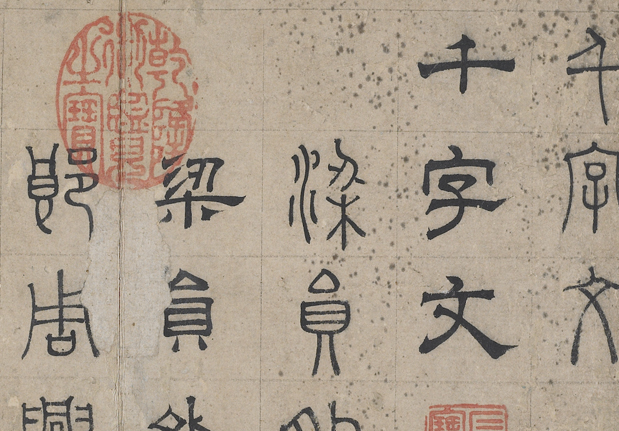 千字文
千字文
梁員外
梁員外
郎周興
乾隆御覽之寶